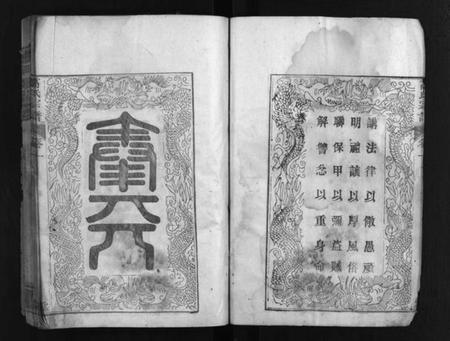 講法律以儆愚頑
明禮讓以厚風俗
聯保甲以彌盜賊
解讐忿以重身命
奉行